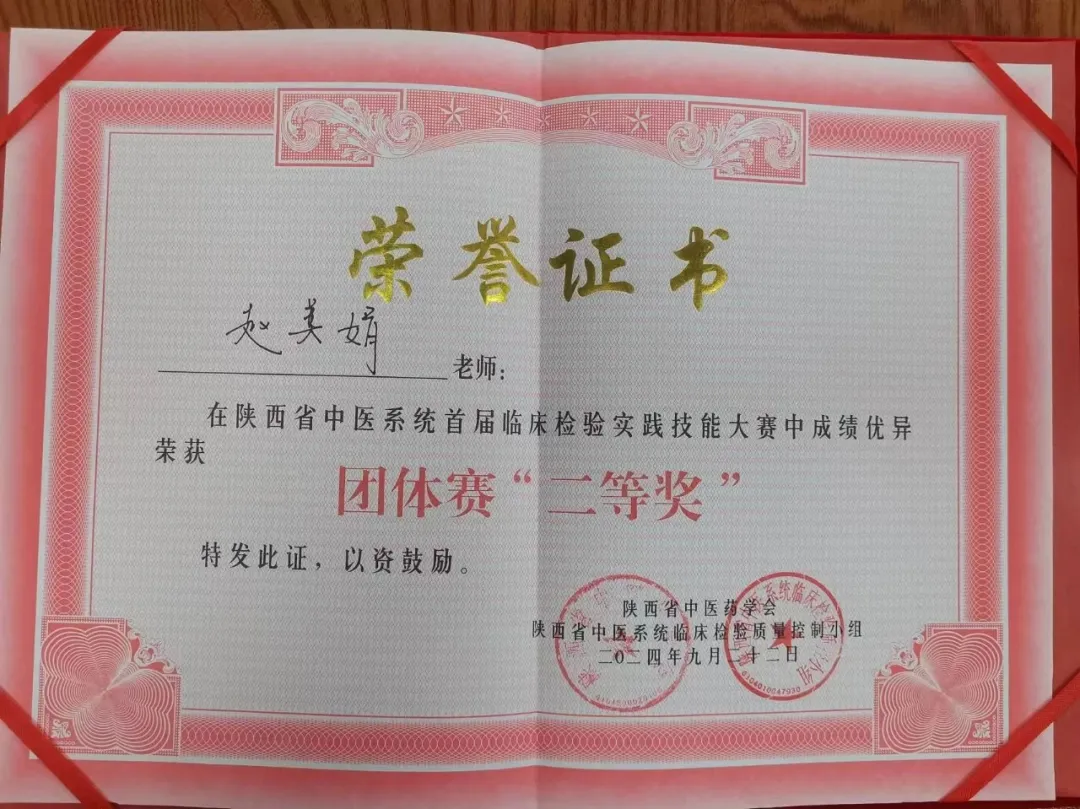 荣誉证书
赵美娟 老师：
在陕西省中医系统首届临床检验实践技能大赛中成绩优异
荣获
团体赛“二等奖”
特发此证，以资鼓励。
陕西省中医药学会
陕西省中医系统临床检验质量控制小组
二〇二四年九月二十二日
6104010047930